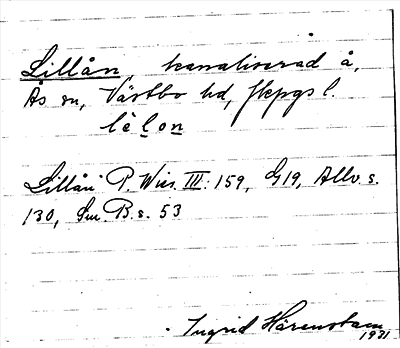 Lillån, kanaliserad å,
Ås sn, Västbo hd, Jkpgs l.
lèlon
Lillån P. Wies. III: 159, G19, Allv. s.
130, Sm. B. s. 53
Ingrid Härenstam
1931